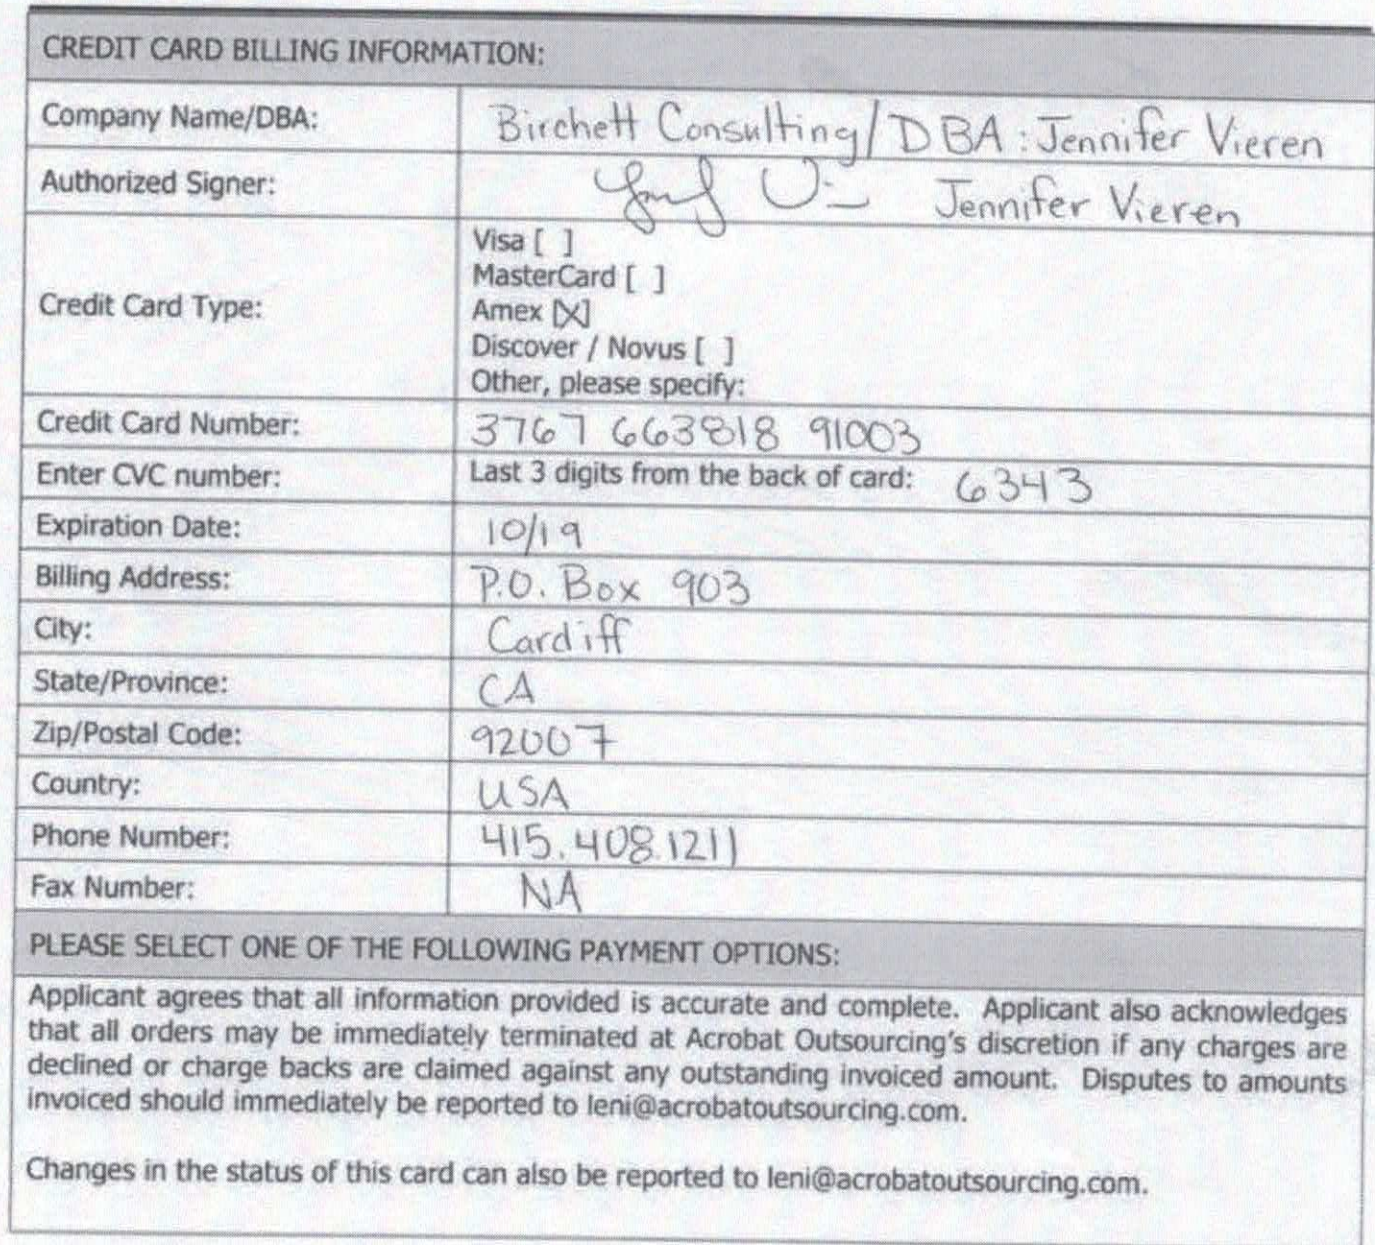 CREDIT CARD BILLING INFORMATION:
Company Name/DBA: Birchett Consulting/DBA: Jennifer Vieren
Authorized Signer: Jennifer Vieren
Credit Card Type:
Visa [ ]
MasterCard [ ]
Amex [X]
Discover / Novus [ ]
Other, please specify:
Credit Card Number: 3767 663818 91003
Enter CVC number: Last 3 digits from the back of card: 6343
Expiration Date: 10/19
Billing Address: P.O. Box 903
City: Cardiff
State/Province: CA
Zip/Postal Code: 92007
Country: USA
Phone Number: 415.408.1211
Fax Number: NA
PLEASE SELECT ONE OF THE FOLLOWING PAYMENT OPTIONS:
Applicant agrees that all information provided is accurate and complete. Applicant also acknowledges
that all orders may be immediately terminated at Acrobat Outsourcing's discretion if any charges are
declined or charge backs are claimed against any outstanding invoiced amount. Disputes to amounts
invoiced should immediately be reported to leni@acrobatoutsourcing.com.
Changes in the status of this card can also be reported to leni@acrobatoutsourcing.com.